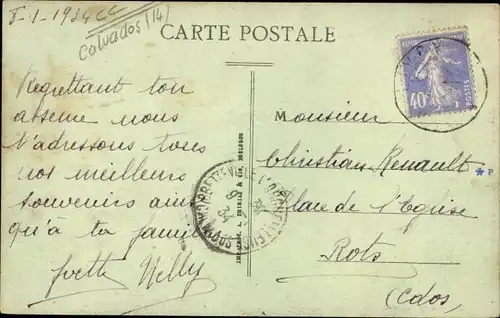 8-1-1934
Calvados (14)
CARTE POSTALE
Regrettant ton
absence nous
t'adressons tous
nos meilleurs
souvenirs ainsi
qu'à ta famille
Yvette Nelly
Monsieur
Christian Renault
Place de l'Eglise
Rots
(Cdos)
40c
POSTES